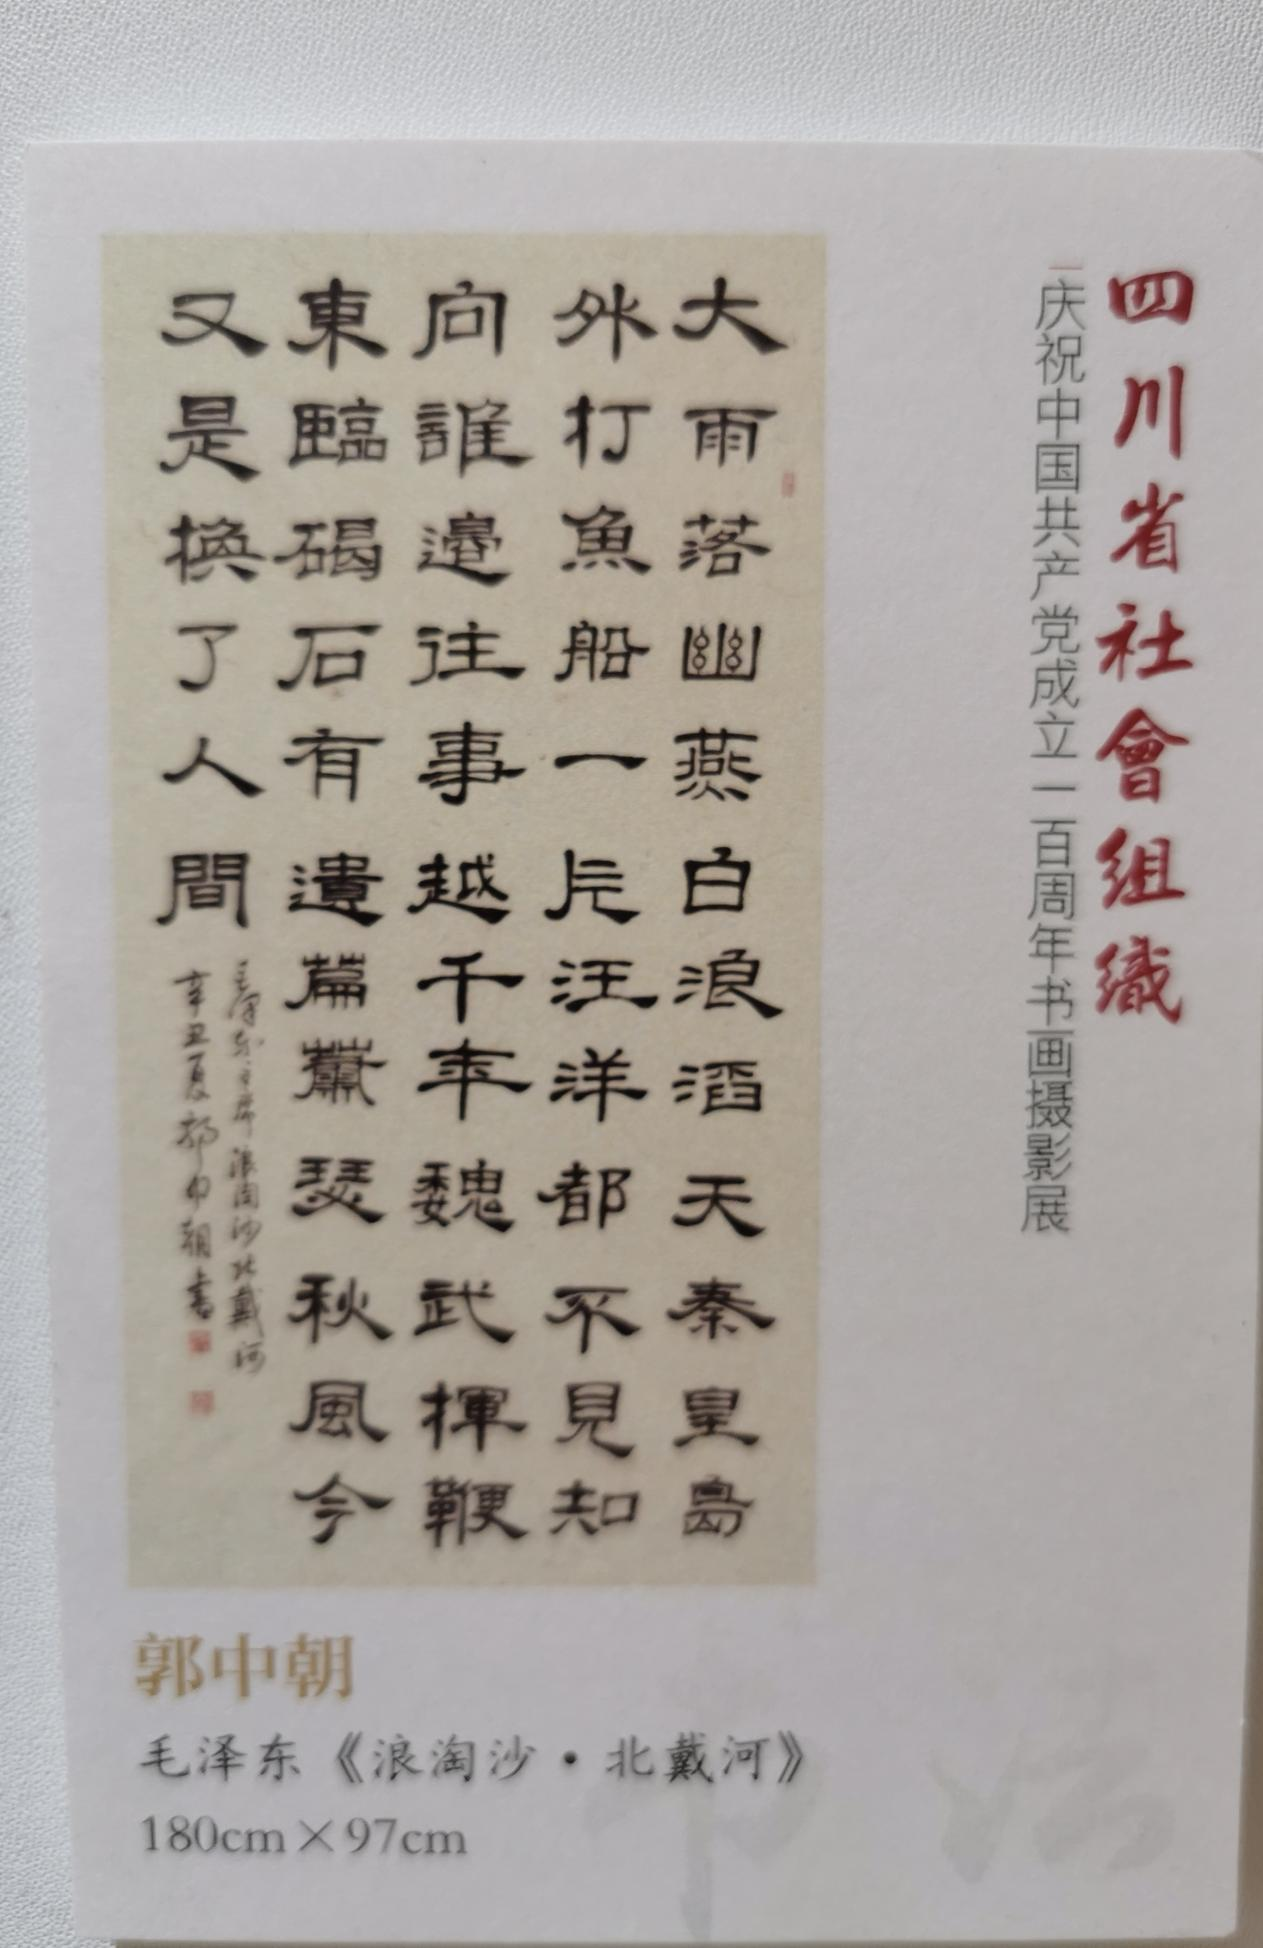 四川省社會組織
庆祝中国共产党成立一百周年书画摄影展
大雨落幽燕白浪滔天秦皇島
外打魚船一片汪洋都不見知
向誰邊往事越千年魏武揮鞭
東臨碣石有遺篇蕭瑟秋風今
又是換了人間
毛澤东主席浪淘沙北戴河
辛丑夏郭中朝書
郭中朝
毛泽东《浪淘沙·北戴河》
180cm×97cm